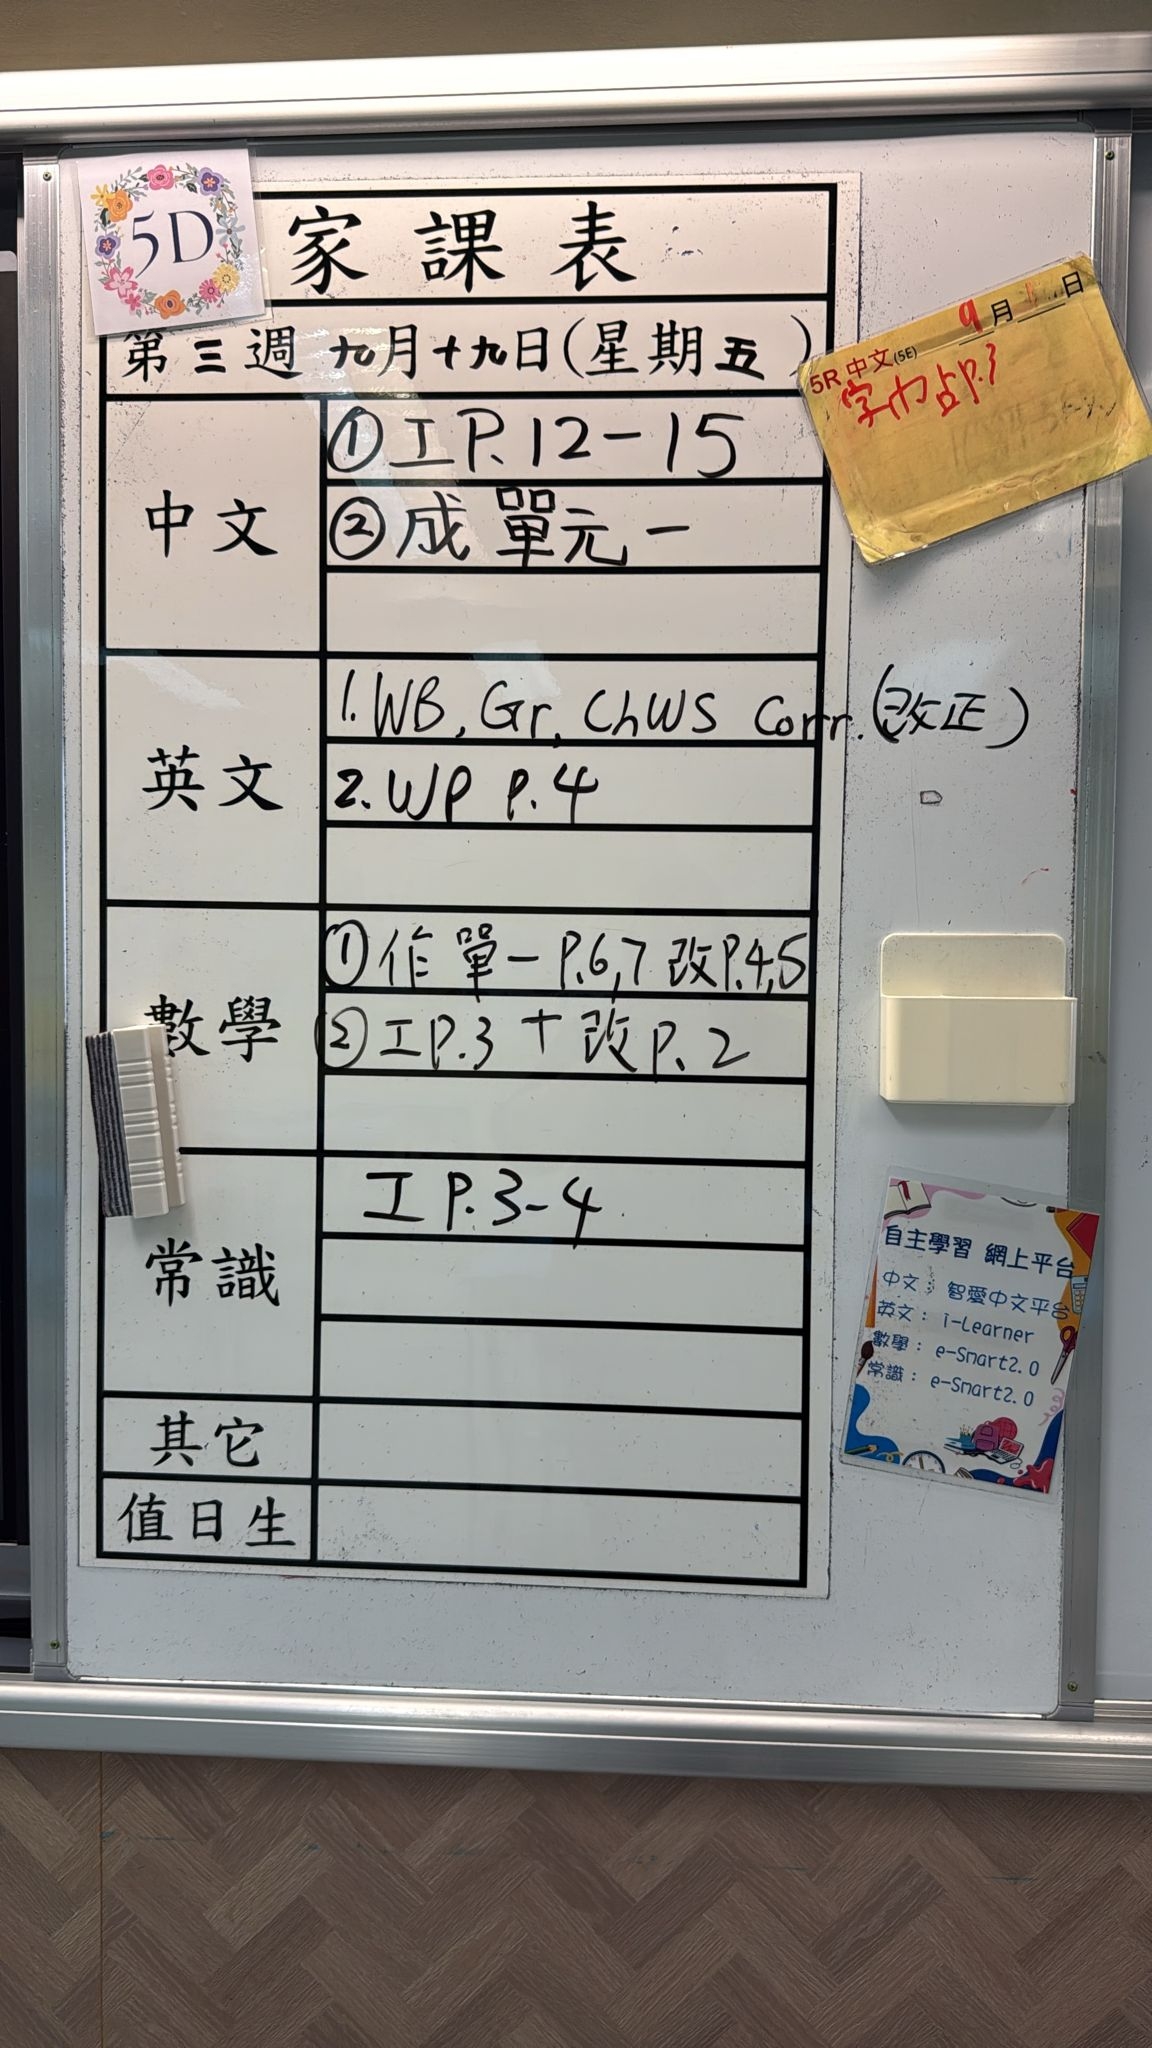 5D
家課表
第三週 九月十九日(星期五)
9月 日
5R 中文(5E)
P.3
中文
①工P.12-15
②成單元一
英文
1.WB, Gr, ChWS Corr.(改正)
2.WP P.4
數學
①作單一P.6,7 改P.4,5
②工P.3+改P.2
常識
工P.3-4
其它
值日生
自主學習 網上平台
中文: 智愛中文平台
英文: i-Learner
數學: e-Smart2.0
常識: e-Smart2.0